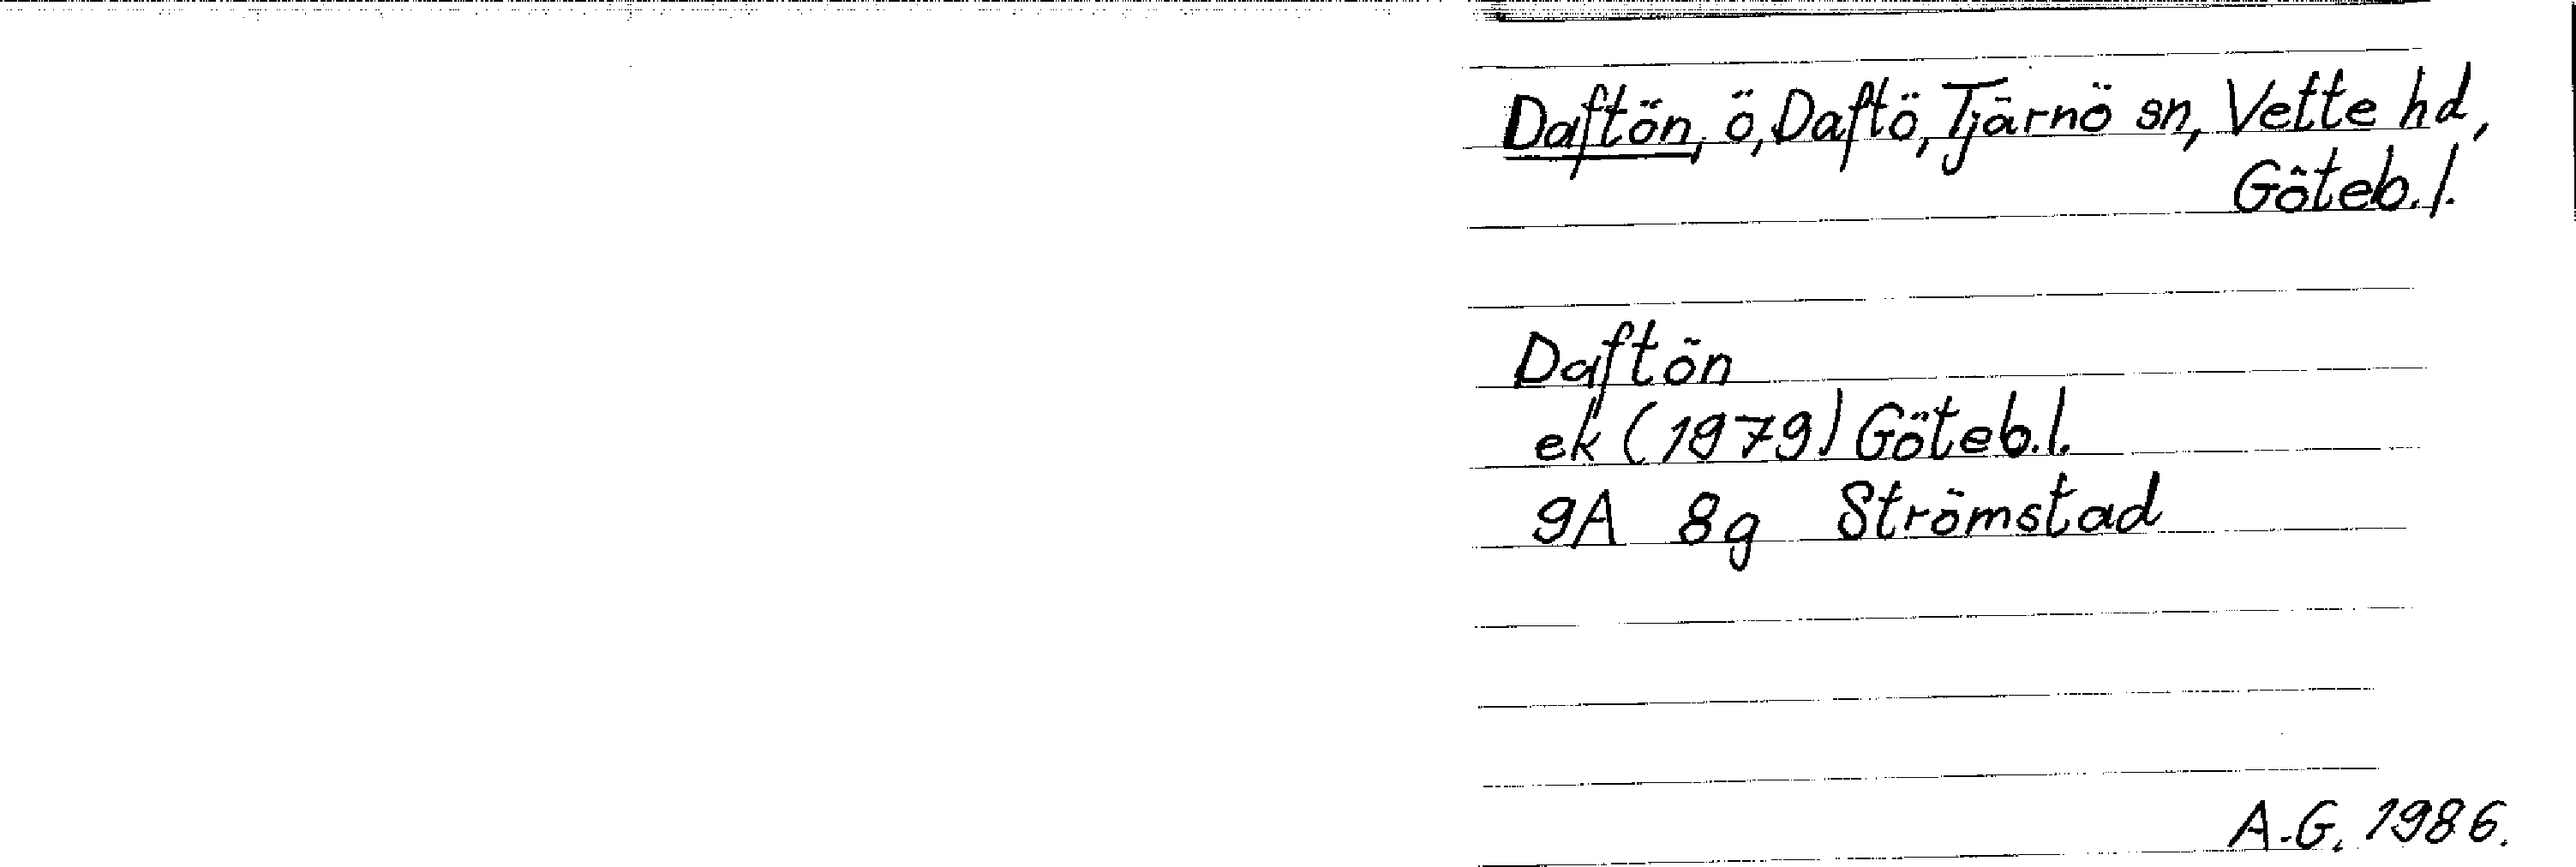 Daftön, ö, Daftö, Tjärnö sn, Vette hd,
Göteb.l.
Daftön
ek (1979) Göteb.l.
9A 8g Strömstad
A.G. 1986.